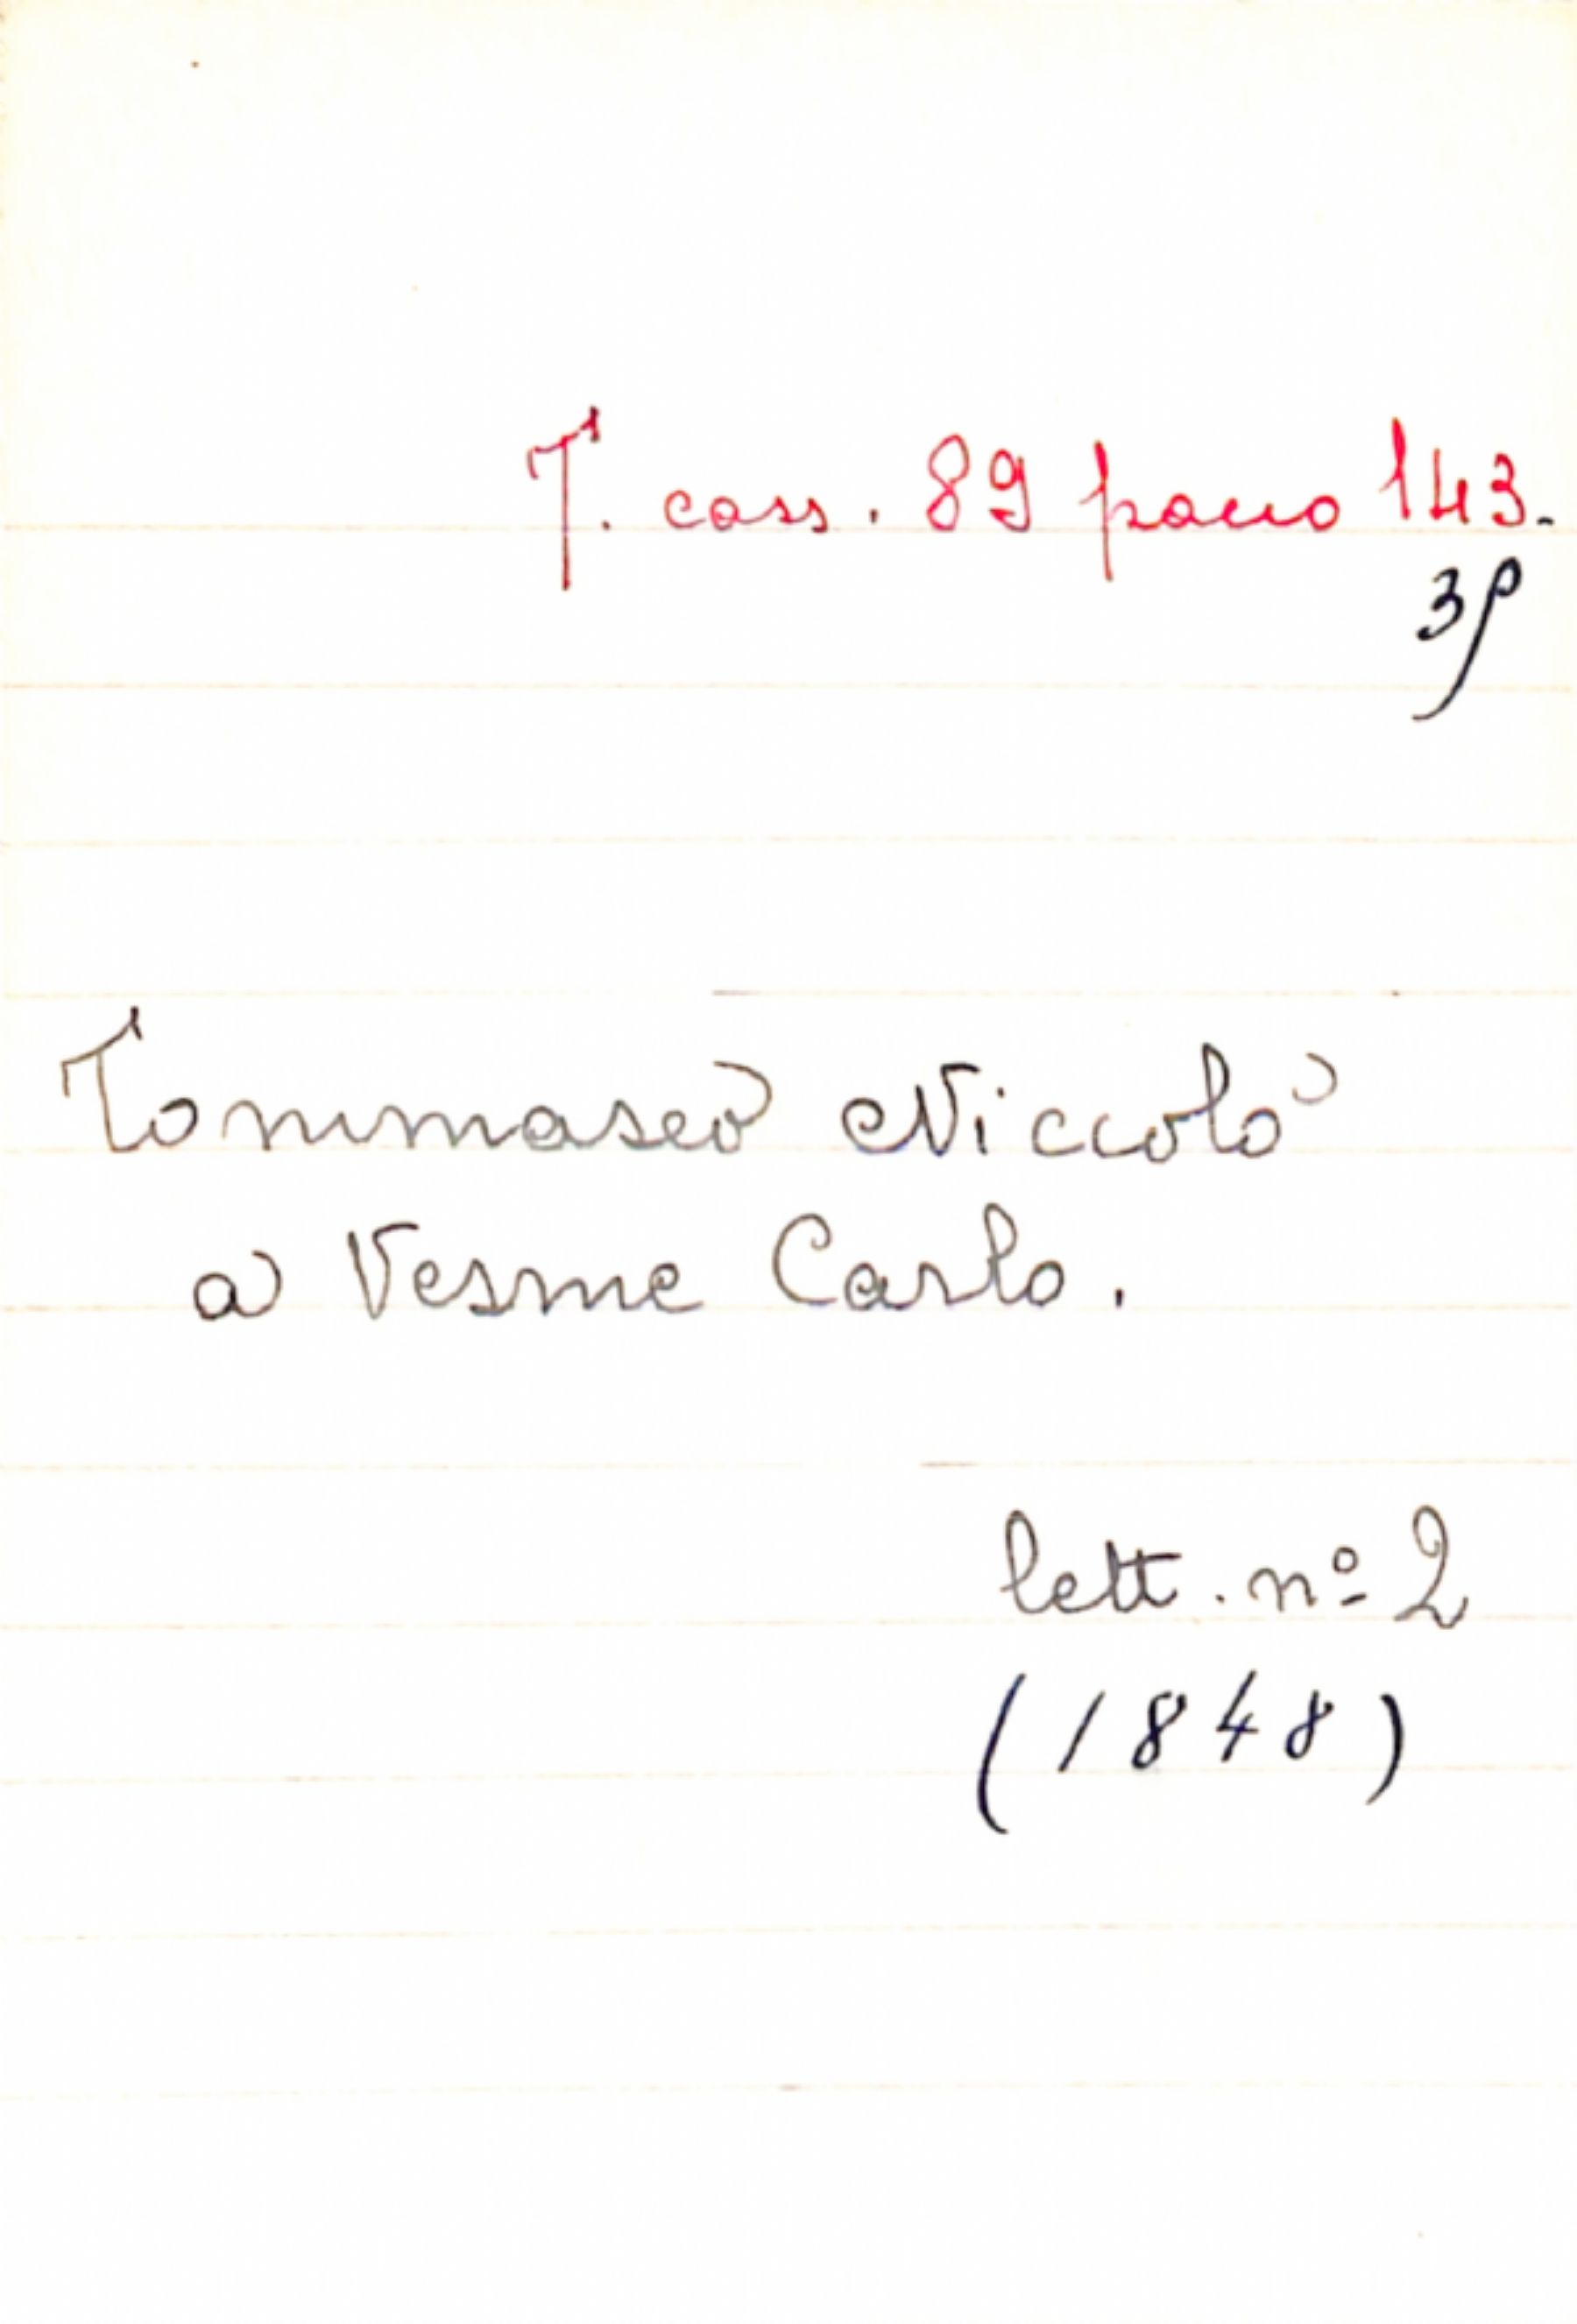 T. cass. 89 pacco 143.
3p
Tommaseo Niccolò
a Vesme Carlo.
lett. nº 2
(1848)